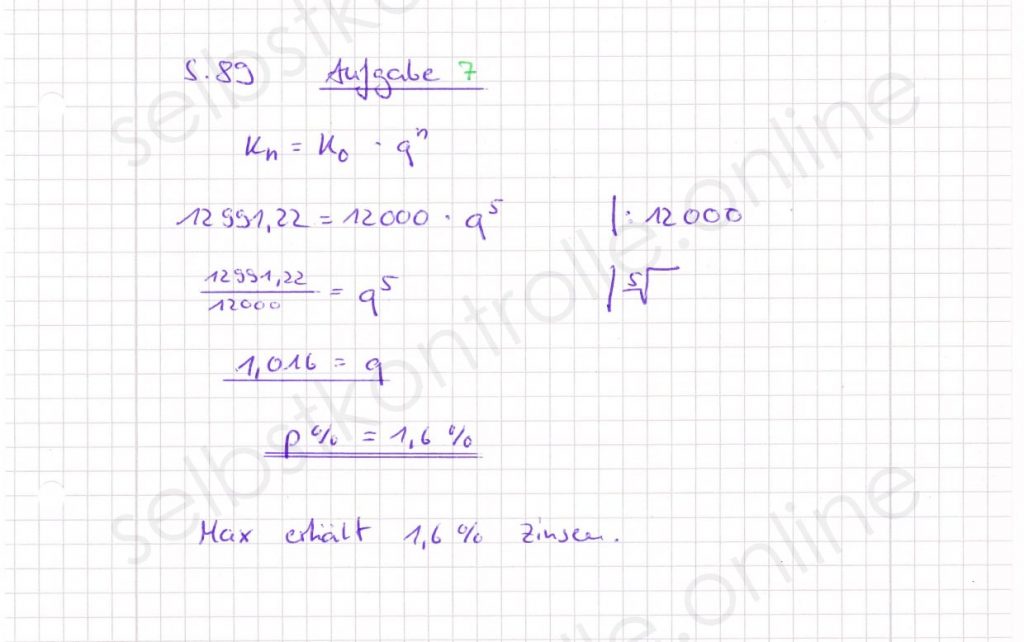 S.89 Aufgabe 7
Kn = K0 · qⁿ
12991,22 = 12000 · q⁵ |: 12000
12991,22/12000 = q⁵ |⁵√
1,016 = q
p% = 1,6 %
Max erhält 1,6% Zinsen.
selbstkontrolle.online
selbstkontrolle.online